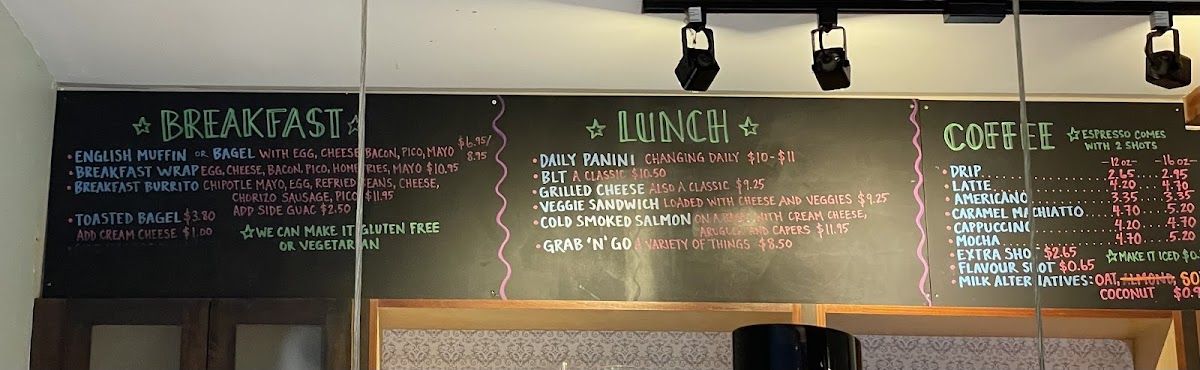 BREAKFAST
ENGLISH MUFFIN OR BAGEL WITH EGG, CHEESE, BACON, PICO, MAYO $6.95/
8.95
BREAKFAST WRAP EGG, CHEESE, BACON, PICO, HOME FRIES, MAYO $10.95
BREAKFAST BURRITO CHIPOTLE MAYO, EGG, REFRIED BEANS, CHEESE,
CHORIZO SAUSAGE, PICO $11.95
ADD SIDE GUAC $2.50
TOASTED BAGEL $3.80
ADD CREAM CHEESE $1.00
WE CAN MAKE IT GLUTEN FREE
OR VEGETARIAN
LUNCH
DAILY PANINI CHANGING DAILY $10-$11
BLT A CLASSIC $10.50
GRILLED CHEESE ALSO A CLASSIC $9.25
VEGGIE SANDWICH LOADED WITH CHEESE AND VEGGIES $9.25
COLD SMOKED SALMON ON A BAGEL WITH CREAM CHEESE,
ARUGULA AND CAPERS $11.95
GRAB 'N' GO A VARIETY OF THINGS $8.50
COFFEE
ESPRESSO COMES
WITH 2 SHOTS
-12oz- -16oz-
DRIP 2.65 2.95
LATTE 4.20 4.70
AMERICANO 3.35 3.35
CARAMEL MACHIATTO 4.70 5.20
CAPPUCCINO 4.20 4.70
MOCHA 4.70 5.20
EXTRA SHOT $2.65
MAKE IT ICED $0.
FLAVOUR SHOT $0.65
MILK ALTERNATIVES: OAT, ALMOND, SO
COCONUT $0.9